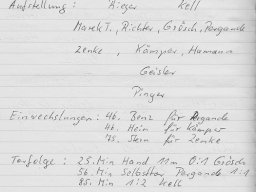 Aufstellung : Rieger Kell
Marek T., Richter, Grösch, Pergande
Zenke, Kämper, Hamann
Geisler
Pinger
Einwechslungen : 46. Benz für Pergande
46. Hein für Kämper
75. Stern für Zenke
Torfolge : 25. Min Hand 11m 0:1 Grösch
56. Min Selbsttor Pergande 1:1
85. Min 1:2 Kell